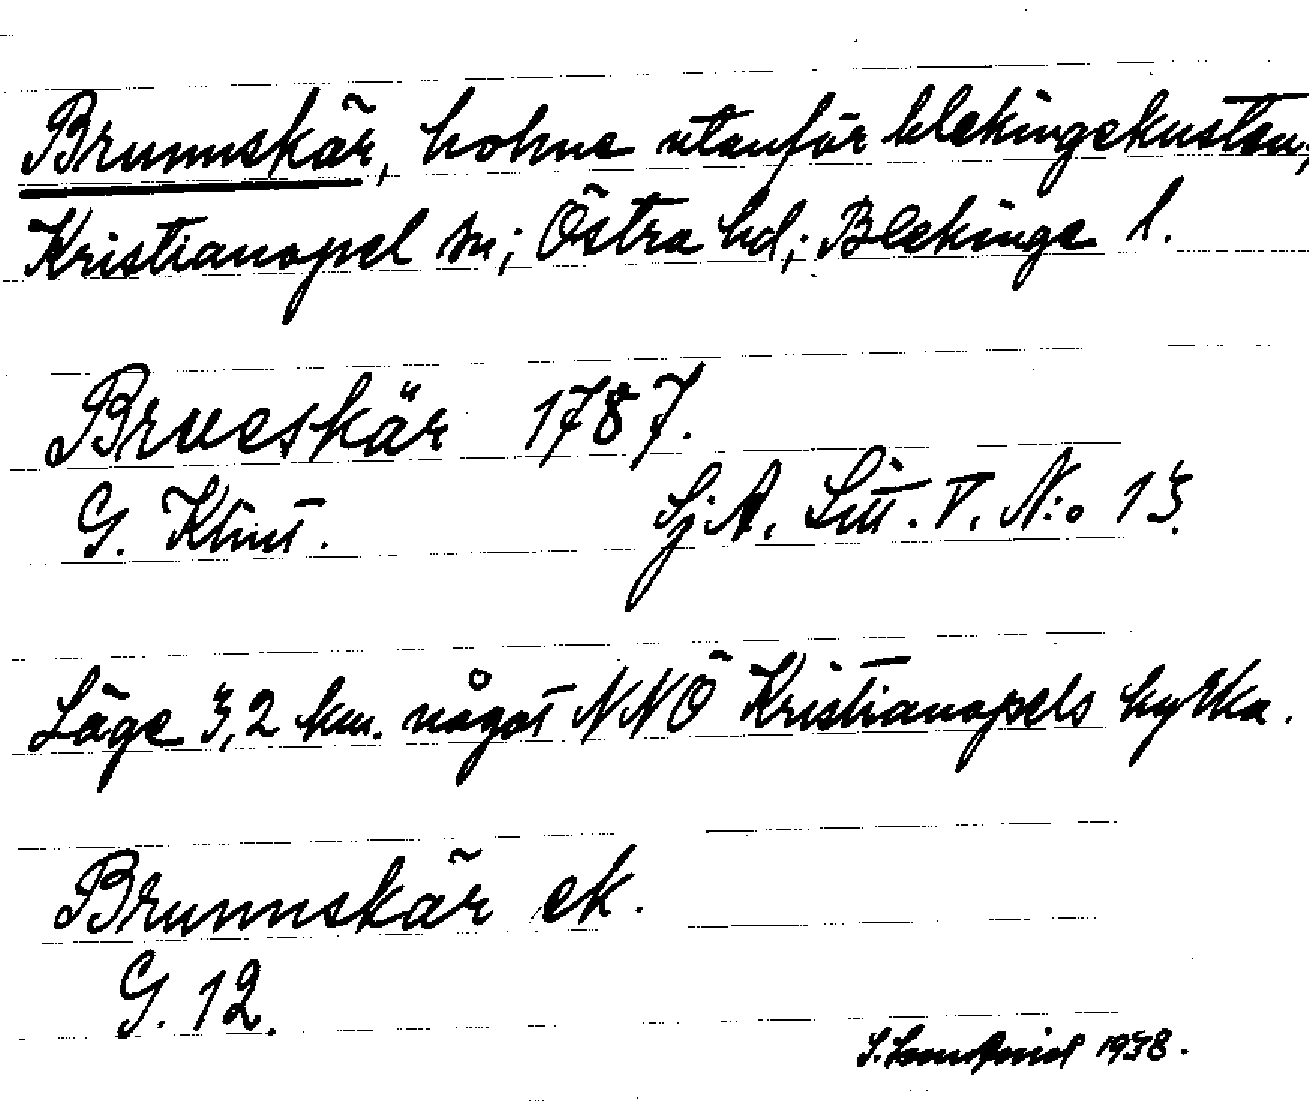 Brunnskär, holme utanför blekingekusten,
Kristianopel sn; Östra hd; Blekinge l.
Brueskär 1787.
G. Klint. Sj.A. Litt. V. N:o 13.
Läge 3,2 km. något NNÖ Kristianopels kyrka.
Brunnskär ek.
G. 12.
1938.